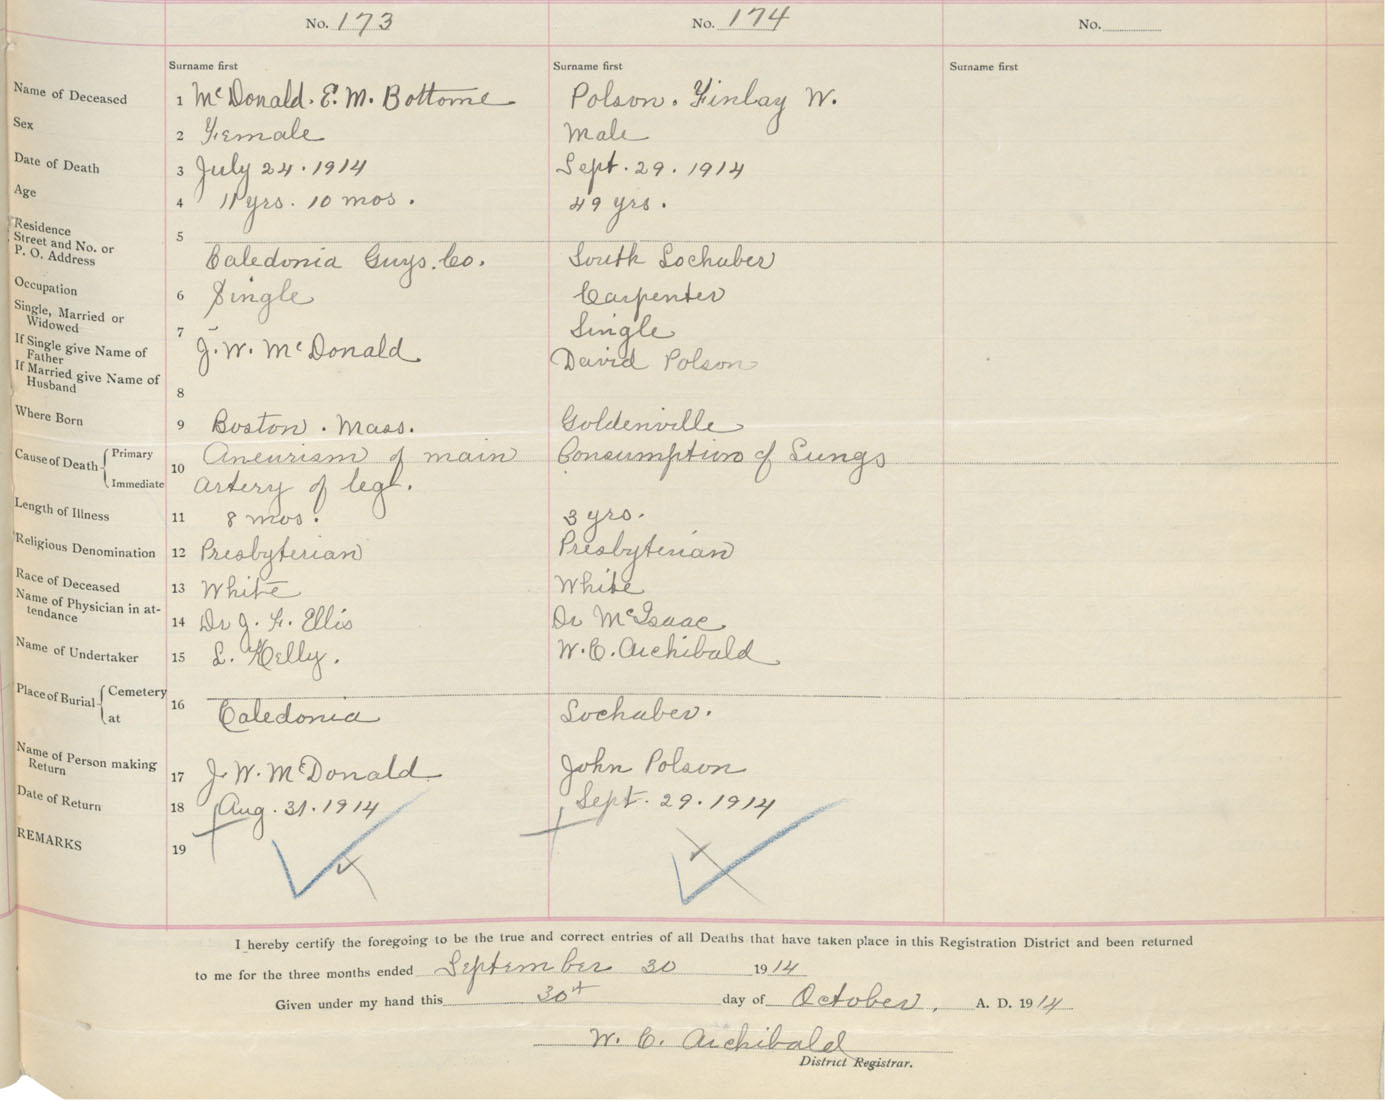 No. 173 No. 174 No.
Surname first Surname first Surname first
Name of Deceased 1 McDonald. E. M. Bottome Polson. Finlay W.
Sex 2 Female Male
Date of Death 3 July 24. 1914 Sept. 29. 1914
Age 4 11 yrs. 10 mos. 49 yrs.
Residence
Street and No. or 5
P. O. Address Caledonia Guys. Co. South Lochaber
Occupation 6 Single Carpenter
Single, Married or
Widowed 7 Single
If Single give Name of J. W. McDonald David Polson
Father
If Married give Name of
Husband 8
Where Born 9 Boston. Mass. Goldenville
Cause of Death Primary 10 Aneurism of main Consumption of Lungs
Immediate artery of leg.
Length of Illness 11 8 mos. 3 yrs.
Religious Denomination 12 Presbyterian Presbyterian
Race of Deceased 13 White White
Name of Physician in at-
tendance 14 Dr J. F. Ellis Dr McIsaac
Name of Undertaker 15 L. Kelly. W. C. Archibald
Place of Burial Cemetery 16
at Caledonia Lochaber.
Name of Person making
Return 17 J. W. McDonald John Polson
Date of Return 18 Aug. 31. 1914 Sept. 29. 1914
REMARKS 19
I hereby certify the foregoing to be the true and correct entries of all Deaths that have taken place in this Registration District and been returned
to me for the three months ended September 30 1914
Given under my hand this 30t day of October, A. D. 1914
W. C. Archibald
District Registrar.